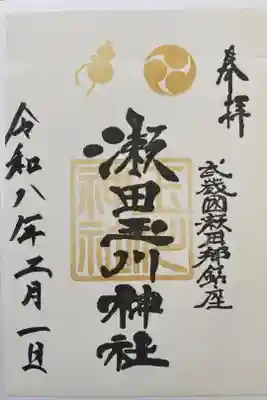 奉拝
武蔵國荏原郡鎮座
瀬田玉川神社
令和八年二月一日